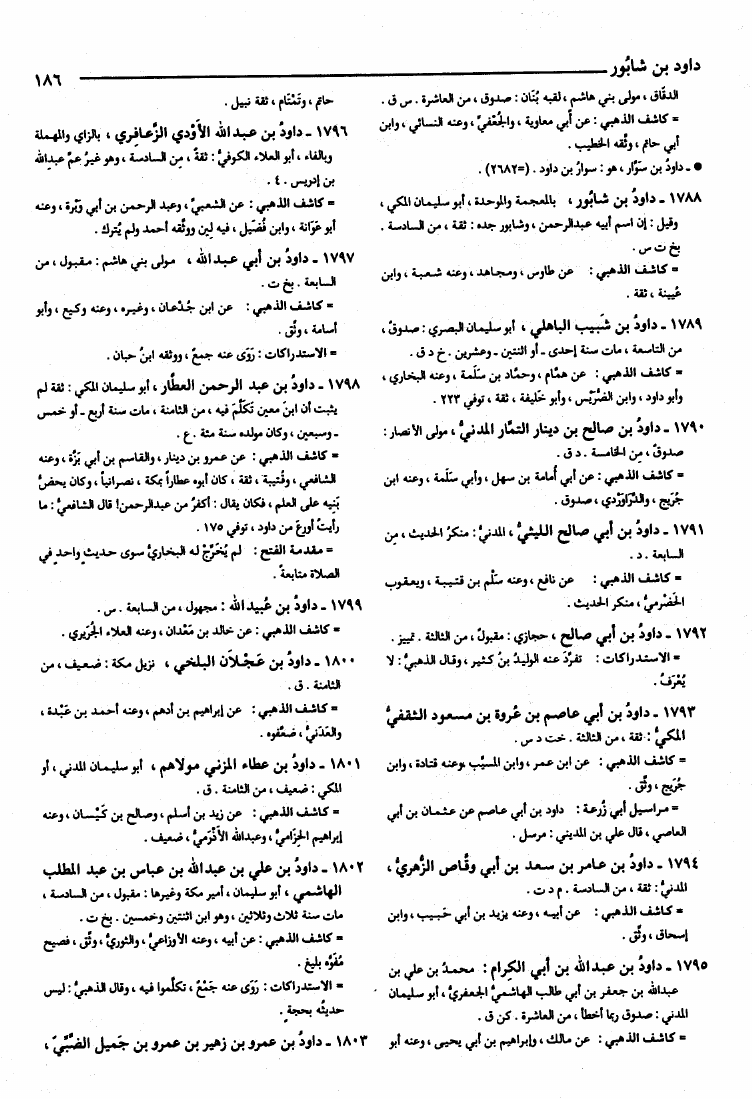 داود بن شابُور
١٨٦
الدقاق ، مولى بني هاشم ، لقبه بُنَان : صدوق ، من العاشرة . س ق .
= كاشف الذهبي : عن أبي معاوية ، والجُعْفيّ ، وعنه النسائي ، وابن
أبي حاتم ، وثّقه الخطيب .
● ـ داودُ بن سَوَّار ، هو : سوارُ بن داود . (=٢٦٨٢) .
١٧٨٨ ـ داودُ بن شابُور ، بالمعجمة والموحدة ، أبو سليمان المكي ،
وقيل : إن اسم أبيه عبدالرحمن ، وشابور جده : ثقة ، من السادسة .
بخ ت س .
= كاشف الذهبي : عن طاوس ، ومجاهد ، وعنه شعبة ، وابن
عُيينة ، ثقة .
١٧٨٩ ـ داودُ بن شَبيب الباهلي ، أبو سليمان البصري : صدوقٌ ،
من التاسعة ، مات سنة إحدى ـ أو اثنتين ـ وعشرين . خ د ق .
= كاشف الذهبي : عن همّام ، وحمّاد بن سَلَمة ، وعنه البخاري ،
وأبو داود ، وابن الضُّرَيْس ، وأبو خليفة ، ثقة ، توفي ٢٢٣ .
١٧٩٠ ـ داودُ بن صالح بن دينار التمّار المدنيُّ ، مولى الأنصار :
صدوقٌ ، من الخامسة . د ق .
= كاشف الذهبي : عن أبي أمامة بن سهل ، وأبي سَلَمة ، وعنه ابن
جُرَيج ، والدَّرَاوَرْدي ، صدوق .
١٧٩١ ـ داودُ بن أبي صالح الليثيُّ ، المدنيُّ : منكرُ الحديث ، من
السابعة . د .
= كاشف الذهبي : عن نافع ، وعنه سَلْم بن قتيبة ، ويعقوب
الحَضْرميُّ ، منكر الحديث .
١٧٩٢ ـ داودُ بن أبي صالح ، حجازي : مقبولٌ ، من الثالثة . تمييز .
= الاستدراكات : تفرّدَ عنه الوليدُ بنُ كثير ، وقال الذهبيُّ : لا
يُعْرَفُ .
١٧٩٣ ـ داودُ بن أبي عاصم بن عُروة بن مسعود الثقفيُّ
المكيُّ : ثقة ، من الثالثة . خت د س .
= كاشف الذهبي : عن ابن عمر ، وابن المسيّب ،وعنه قتادة ، وابن
جُرَيج ، وثّق .
= مراسيل أبي زُرعة : داود بن أبي عاصم عن عثمان بن أبي
العاصي ، قال علي بن المديني : مرسل .
١٧٩٤ ـ داودُ بن عامر بن سعد بن أبي وقّاص الزُّهريُّ ،
المدنيُّ : ثقة ، من السادسة . م د ت .
= كاشف الذهبي : عن أبيه ، وعنه يزيد بن أبي حَبيب ، وابن
إسحاق ، وثّق .
١٧٩٥ ـ داودُ بن عبدالله بن أبي الكرام : محمدُ بن علي بن
عبدالله بن جعفر بن أبي طالب الهاشميُّ الجعفريُّ ، أبو سليمان
المدني : صدوق ربما أخطأ ، من العاشرة . كن ق .
= كاشف الذهبي : عن مالك ، وإبراهيم بن أبي يحيى ، وعنه أبو
حاتم ، وتَمْتَام ، ثقة نبيل .
١٧٩٦ ـ داودُ بن عبدالله الأَوْدي الزَّعافِري ، بالزاي والمهملة
وبالفاء ، أبو العلاء الكوفيُّ : ثقةٌ ، من السادسة ، وهو غيرُ عمِّ عبدالله
بن إدريس . ٤ .
= كاشف الذهبي : عن الشعبيِّ ، وعبد الرحمن بن أبي وَبْرة ، وعنه
أبو عَوَانة ، وابن فُضَيل ، فيه لِين ووثّقه أحمد ولم يُترك .
١٧٩٧ ـ داودُ بن أبي عبدالله ، مولى بني هاشم : مقبول ، من
السابعة . بخ ت .
= كاشف الذهبي : عن ابن جُدْعان ، وغيره ، وعنه وكيع ، وأبو
أسامة ، وثّق .
= الاستدراكات : رَوَى عنه جمعٌ ، ووثقه ابنُ حبان .
١٧٩٨ ـ داودُ بن عبد الرحمن العطّار ، أبو سليمان المكي : ثقة لم
يثبت أن ابنَ معين تَكلَّمَ فيه ، من الثامنة ، مات سنة أربع ـ أو خمس
ـ وسبعين ، وكان مولده سنة مئة . ع .
= كاشف الذهبي : عن عمرو بن دينار ، والقاسم بن أبي بَزَّة ، وعنه
الشافعي ، وقُتيبة ، ثقة ، كان أبوه عطاراً بمكة ، نصرانياً ، وكان يحضُّ
بَنِيه على العلم ، فكان يقال : أكفرُ من عبدالرحمن! قال الشافعيُّ : ما
رأيتُ أورعَ من داود ، توفي ١٧٥ .
= مقدمة الفتح : لم يُخَرِّجْ له البخاريُّ سوى حديثٍ واحدٍ في
الصلاة متابعةً .
١٧٩٩ ـ داودُ بن عُبيدالله : مجهول ، من السابعة . س .
= كاشف الذهبي : عن خالد بن مَعْدان ، وعنه العلاء الجُرَيري .
١٨٠٠ ـ داودُ بن عَجْلَان البلخي ، نزيل مكة : ضعيف ، من
الثامنة . ق .
= كاشف الذهبي : عن إبراهيم بن أدهم ، وعنه أحمد بن عَبْدة ،
والعَدَنيُّ ، ضعّفوه .
١٨٠١ ـ داودُ بن عطاء المزني مولاهم ، أبو سليمان المدني ، أو
المكي : ضعيف ، من الثامنة . ق .
= كاشف الذهبي : عن زيد بن أسلم ، وصالح بن كَيْسان ، وعنه
إبراهيم الحِزَاميُّ ، وعبدالله الأَذْرَميُّ ، ضعيف .
١٨٠٢ ـ داودُ بن علي بن عبدالله بن عباس بن عبد المطلب
الهاشمي ، أبو سليمان ، أمير مكة وغيرها : مقبول ، من السادسة ،
مات سنة ثلاث وثلاثين ، وهو ابن اثنتين وخمسين . بخ ت .
= كاشف الذهبي : عن أبيه ، وعنه الأوزاعيُّ ، والثوريُّ ، وثّق ، فصيح
مُفَوَّه بليغ .
= الاستدراكات : رَوَى عنه جَمْعٌ ، تكلَّموا فيه ، وقال الذهبيُّ : ليس
حديثُه بحجةٍ .
١٨٠٣ ـ داودُ بن عمرو بن زهير بن عمرو بن جَميل الضَّبِّيّ ،